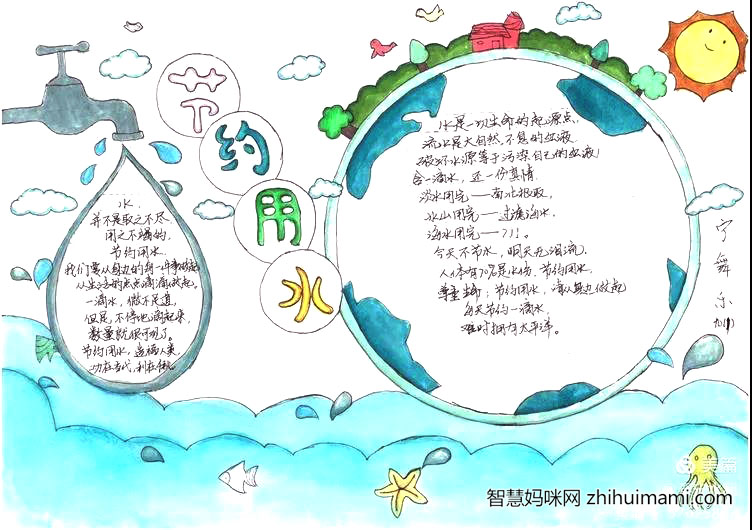 节约用水
水
并不是取之不尽
用之不竭的,
节约用水
我们要从身边的每一件事做起
从生活的点点滴滴做起,
一滴水,微不足道
但是,不停地滴起来,
数量就很可观了。
节约用水,造福人类
功在当代,利在千秋
水是一切生命的起源点,
流水是大自然不息的血液
破坏水源等于污染自己的血液!
舍一滴水,还一份真情.
淡水用完——南北极取,
冰山用完——过滤海水,
海水用完——???。
今天不节水,明天无泪流.
人体有70%是水份,节约用水.
尊重生命;节约用水,请从身边做起
每天节约一滴水
难时拥有太平洋。
宁舞乐
美篇
智慧妈咪网 zhihuimami.com